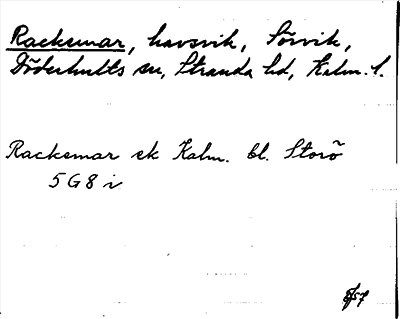 Racksmar, havsvik, Sörvik,
Döderhults sn, Stranda hd, Kalm. l.
Racksmar ek Kalm. bl. Storö
5 G 8 i